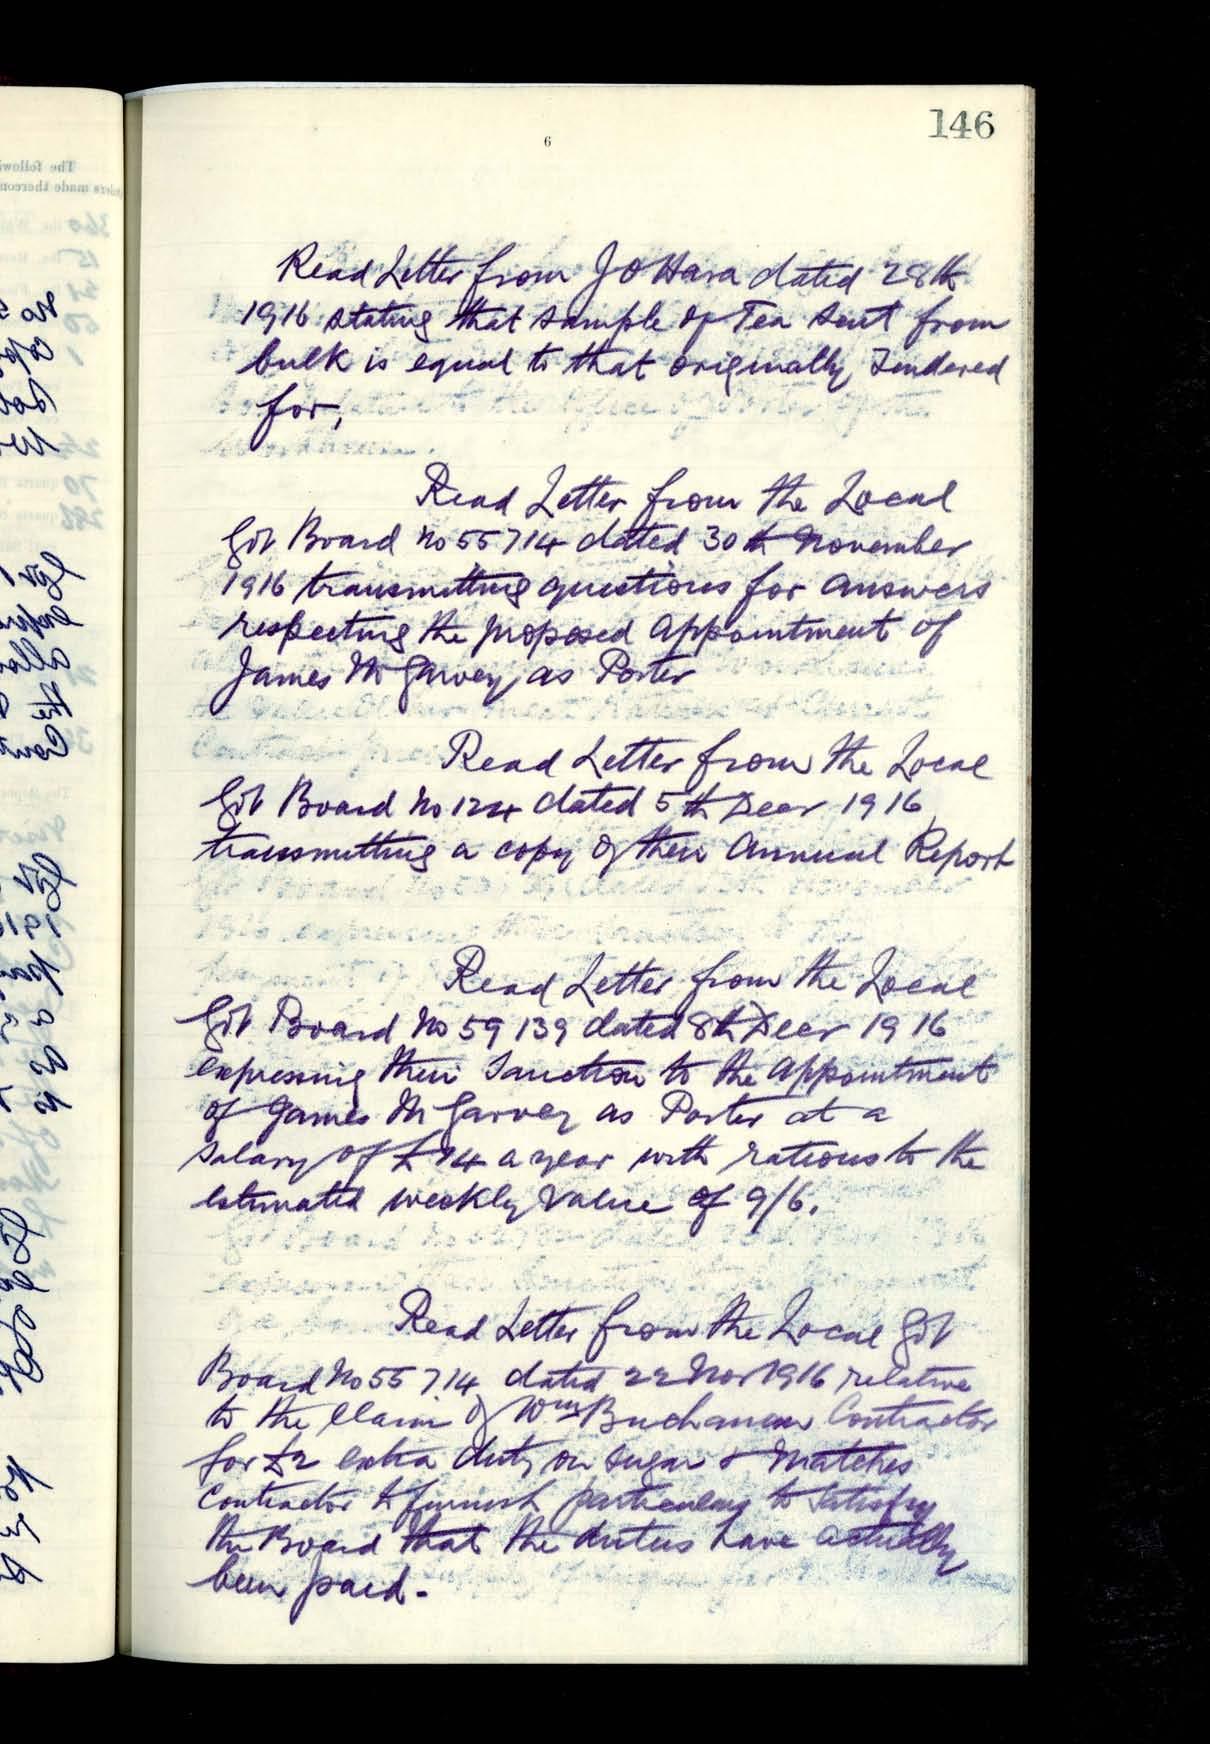 146
6
Read Letter from J O Hara dated 28th
1916 stating that sample of Tea sent from
bulk is equal to that originally Tendered
for,
Read Letter from the Local
Govt Board No 55714 dated 30th November
1916 transmitting questions for answers
respecting the proposed appointment of
James McGarvey as Porter
Read Letter from the Local
Govt Board No 124 dated 5th Decr 1916
transmitting a copy of their Annual Report
Read Letter from the Local
Govt Board No 59139 dated 8th Decr 1916
expressing their Sanction to the appointment
of James McGarvey as Porter at a
Salary of £14 a year with rations to the
estimated weekly value of 9/6.
Read Letter from the Local Govt
Board No 55714 dated 22 Nov 1916 relative
to the Claim of Wm Buchanan Contractor
for £2 extra duty on sugar & Matches
Contractor to furnish particulars to satisfy
the Board that the duties have actually
been paid.